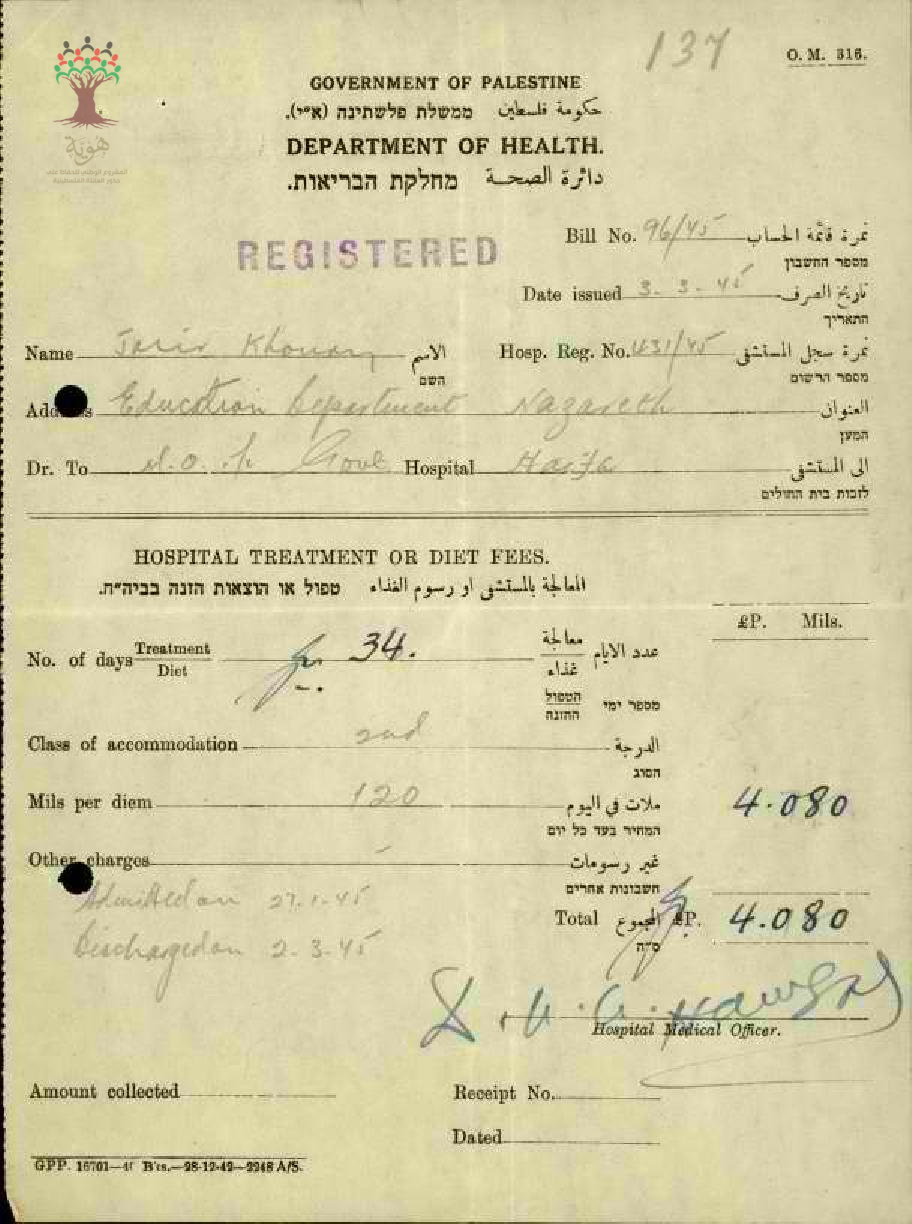 137
O. M. 316.
GOVERNMENT OF PALESTINE
حكومة فلسطين ממשלת פלשתינה (א״י).
DEPARTMENT OF HEALTH.
دائرة الصحة מחלקת הבריאות.
هوية
REGISTERED
Bill No. 96/45 نمرة قائمة الحساب
מספר החשבון
Date issued 3-3-45 تاريخ الصرف
התאריך
Name Khoury الاسم Hosp. Reg. No. 431/45 نمرة سجل المستشفى
השם מספר הרשום
Address Education Department Nazareth العنوان
המען
Dr. To Govt. Hospital Haifa الى المستشفى
לזכות בית החולים
HOSPITAL TREATMENT OR DIET FEES.
المعالجة بالمستشفى او رسوم الغذاء טפול או הוצאות הזנה בביה״ח.
£P. Mils.
No. of days Treatment Diet 34. معالجة غذاء عدد الايام
הטפול ההזנה מספר ימי
Class of accommodation 2nd الدرجة
הסוג
Mils per diem 120 ملات في اليوم 4.080
המחיר בעד כל יום
Other charges - غير رسومات
חשבונות אחרים
Admitted on 27.1.45
Total المجموع £P. 4.080
ס״ה
Discharged on 2-3-45
Hospital Medical Officer.
Amount collected Receipt No.
Dated
GPP. 16701—4( B'ks.—28-12-42—2248 A/S.